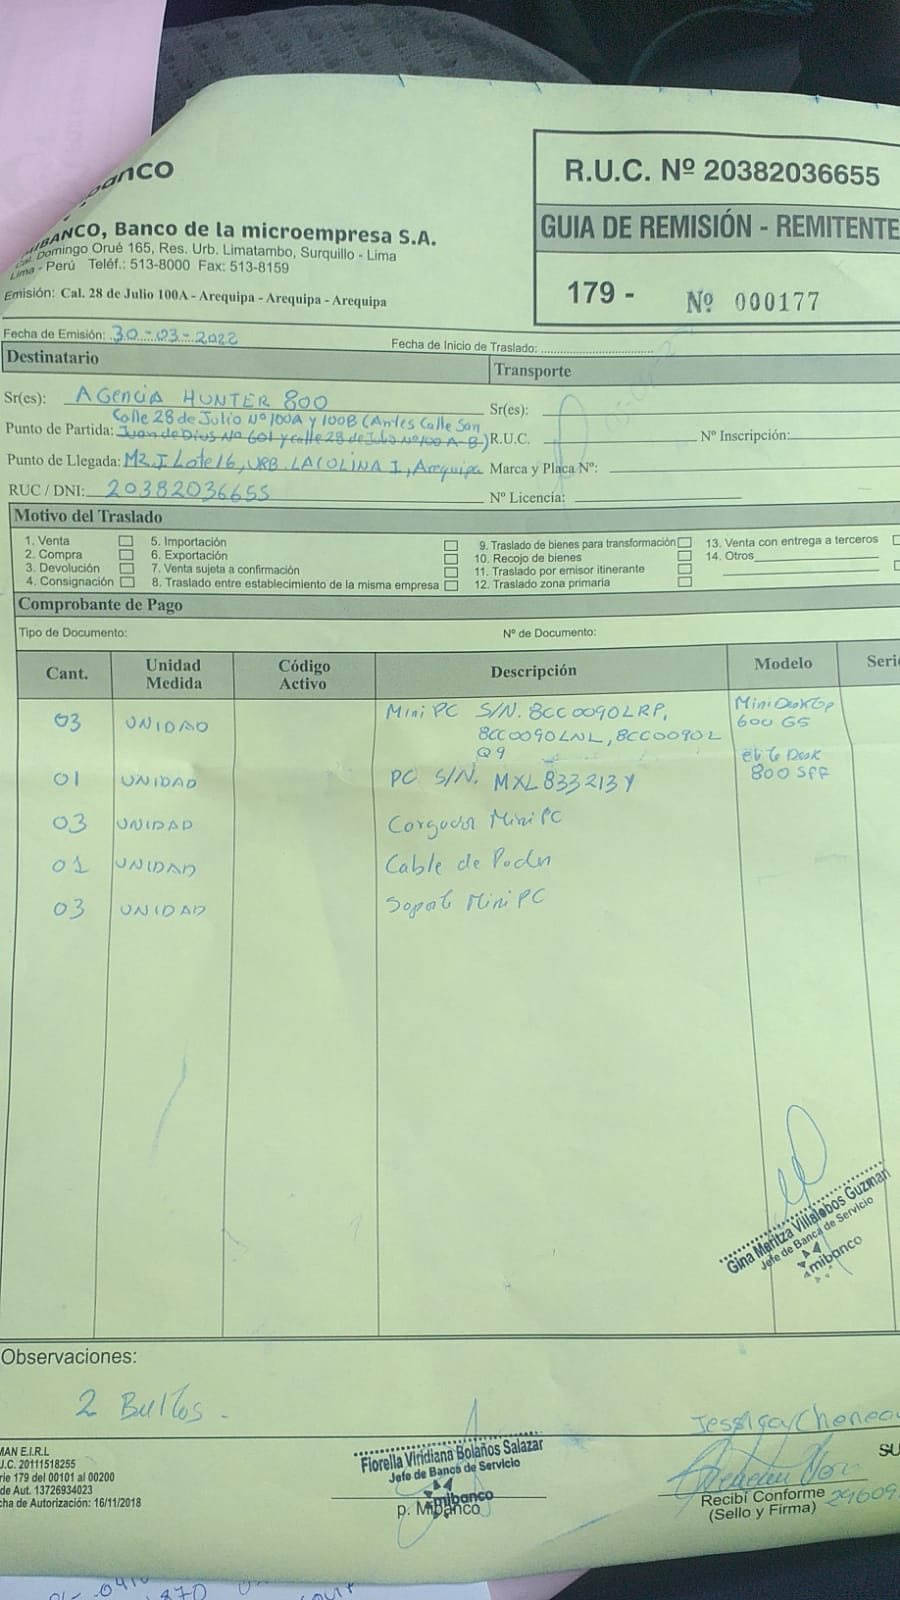 mibanco
MIBANCO, Banco de la microempresa S.A.
Cal. Domingo Orué 165, Res. Urb. Limatambo, Surquillo - Lima
Lima - Perú Teléf.: 513-8000 Fax: 513-8159
Emisión: Cal. 28 de Julio 100A - Arequipa - Arequipa - Arequipa
R.U.C. Nº 20382036655
GUIA DE REMISIÓN - REMITENTE
179 - Nº 000177
Fecha de Emisión: 30-03-2022
Fecha de Inicio de Traslado:
Destinatario
Transporte
Sr(es): AGENCIA HUNTER 800
Sr(es):
Calle 28 de Julio Nº 100A y 100B (Antes Calle San
Punto de Partida: Juan de Dius No 601 y calle 28 de Julio Nº 100 A-B)
R.U.C. Nº Inscripción:
Punto de Llegada: Mz. I Lote 16, URB. LA COLINA I, Arequipa
Marca y Placa Nº:
RUC / DNI: 20382036655
Nº Licencia:
Motivo del Traslado
1. Venta
2. Compra
3. Devolución
4. Consignación
5. Importación
6. Exportación
7. Venta sujeta a confirmación
8. Traslado entre establecimiento de la misma empresa
9. Traslado de bienes para transformación
10. Recojo de bienes
11. Traslado por emisor itinerante
12. Traslado zona primaria
13. Venta con entrega a terceros
14. Otros
Comprobante de Pago
Tipo de Documento: Nº de Documento:
Cant. Unidad Medida Código Activo Descripción Modelo Serie
03 UNIDAD Mini PC S/N. 8CC0090LRP, Mini Desktop
8CC0090LNL, 8CC0090L 600 G5
Q9
01 UNIDAD PC S/N. MXL833213Y Elite Desk
800 SFF
03 UNIDAD Cargador Mini PC
01 UNIDAD Cable de Poder
03 UNIDAD Soporte Mini PC
Gina Maritza Villalobos Guzman
Jefe de Banca de Servicio
mibanco
Observaciones:
2 Bultos.
MAN E.I.R.L
U.C. 20111518255
rie 179 del 00101 al 00200
de Aut. 13726934023
cha de Autorización: 16/11/2018
Fiorella Viridiana Bolaños Salazar
Jefe de Banca de Servicio
mibanco
p. Mibanco
Jessica
SU
Recibí Conforme
(Sello y Firma)